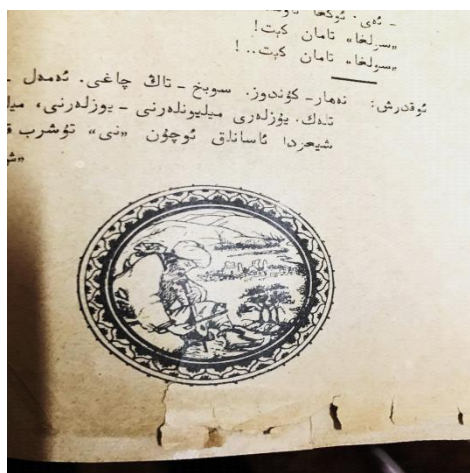 - ئەي. ئوڭغا
„سولغا“ تامان كېت!
„سولغا“ تامان كېت..!
ئوقدرش: نەھار- كۈندوز. سوبخ - تاڭ چاغى. ئەمەل -
تلەك. يۈزلەرى ميليونلەرنى - يوزلەرنى،
شېعردا ئاسانلق ئوچۇن „نى“ تۇشرب